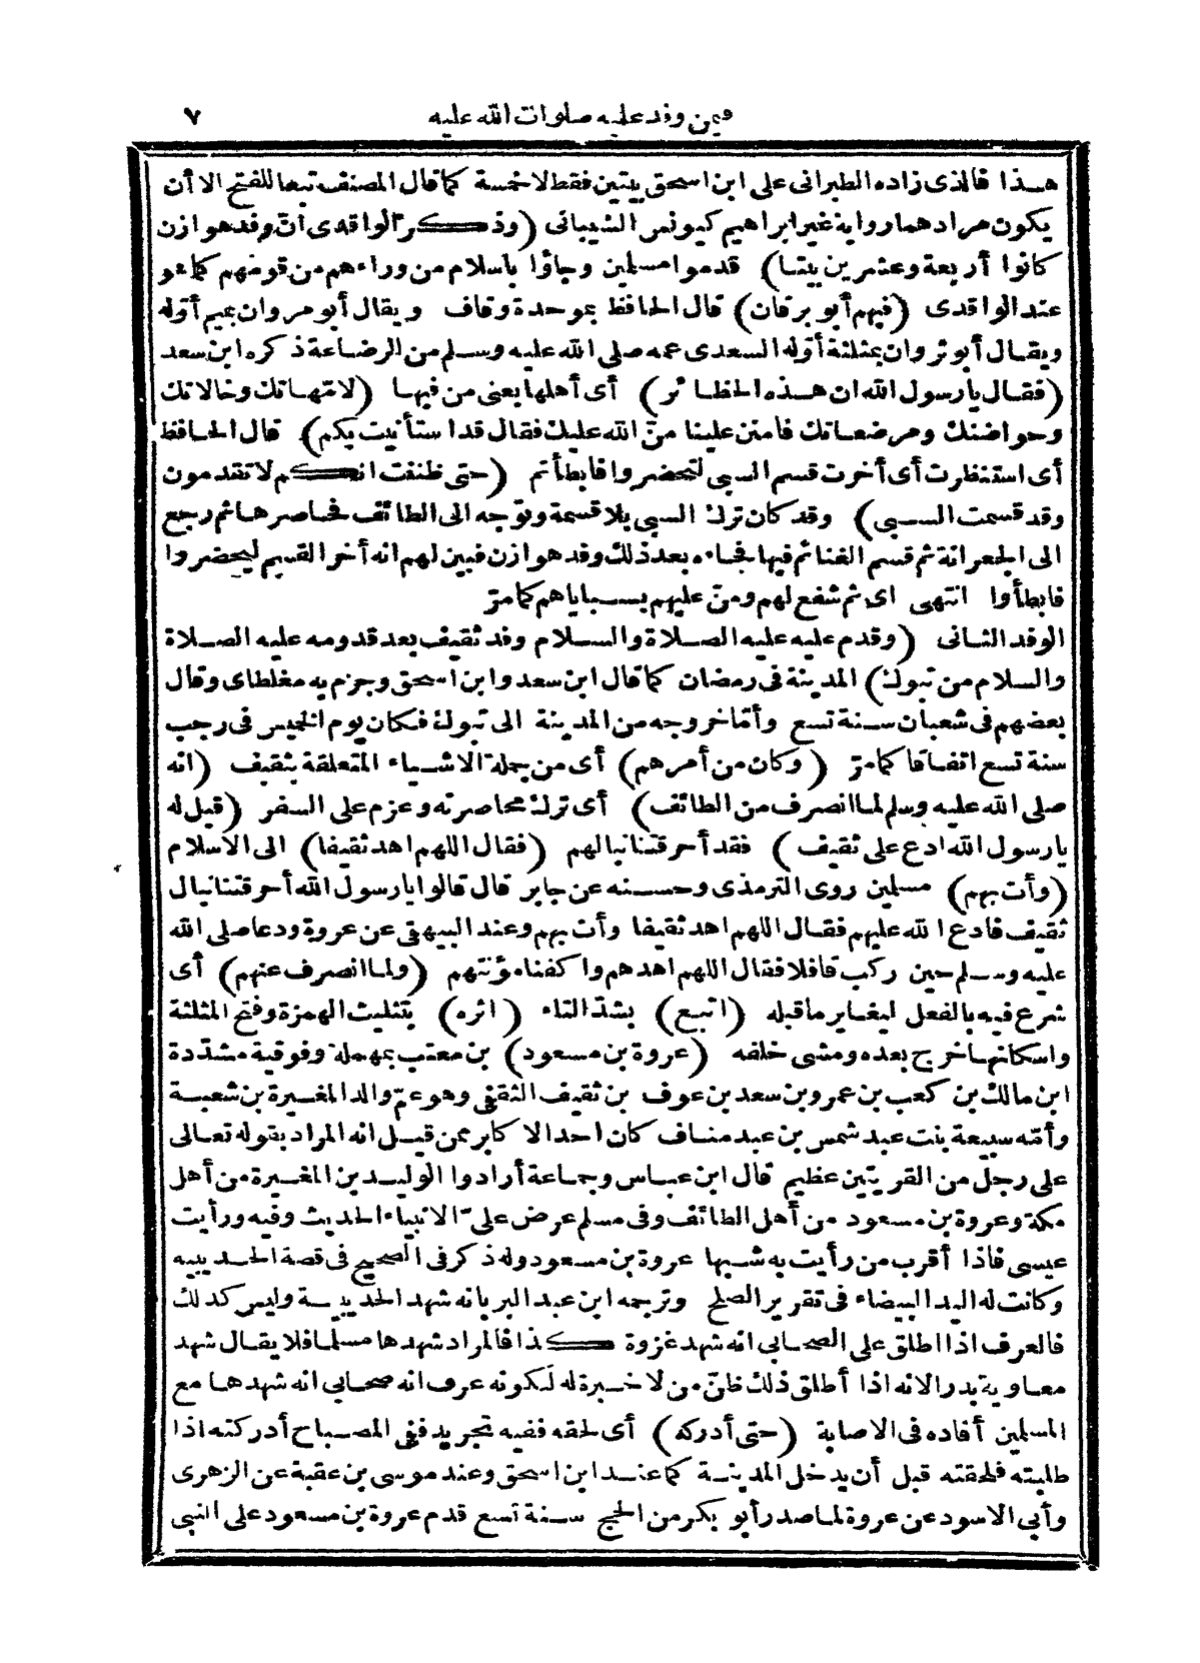 فيمن وفد عليه صلوات الله عليه ٧
هذا فالذى زاده الطبرانى على ابن اسحق بيتين فقط لا خمسة كما قال المصنف تبعا للفتح الا أن
يكون مرادهما رواية غير ابراهيم كيونس الشيبانى (وذكر الواقدى أن وفد هوازن
كانوا أربعة وعشرين بيتا) قدموا مسلمين وجاؤا باسلام من وراءهم من قومهم كما هو
عند الواقدى (فيهم أبو برقان) قال الحافظ بموحدة وقاف ويقال أبو مروان بميم أوله
ويقال أبو ثروان بمثلثة أوله السعدى عمه صلى الله عليه وسلم من الرضاعة ذكره ابن سعد
(فقال يا رسول الله ان هذه الحظائر) أى أهلها يعنى من فيها (لامهاتك وخالاتك
وحواضنك ومرضعاتك فامنن علينا منّ الله عليك فقال قد استأنيت بكم) قال الحافظ
أى استنظرت أى أخرت قسم السبى لتحضروا فابطأتم (حتى ظننت انكم لا تقدمون
وقد قسمت السبى) وقد كان ترك السبى بلا قسمة وتوجه الى الطائف فحاصرها ثم رجع
الى الجعرانة ثم قسم الغنائم فيها فجاءه بعد ذلك وفد هوازن فبين لهم انه أخر القسم ليحضروا
فابطأوا انتهى اى ثم شفع لهم ومنّ عليهم بسباياهم كما مرّ
الوفد الثانى (وقدم عليه عليه الصلاة والسلام وفد ثقيف بعد قدومه عليه الصلاة
والسلام من تبوك) المدينة فى رمضان كما قال ابن سعد وابن اسحق وجزم به مغلطاى وقال
بعضهم فى شعبان سنة تسع وأمّا خروجه من المدينة الى تبوك فكان يوم الخميس فى رجب
سنة تسع اتفاقا كما مرّ (وكان من أمرهم) أى من جملة الاشياء المتعلقة بثقيف (انه
صلى الله عليه وسلم لما انصرف من الطائف) أى ترك محاصرته وعزم على السفر (قيل له
يا رسول الله ادع على ثقيف) فقد أحرقتنا نبالهم (فقال اللهم اهد ثقيفا) الى الاسلام
(وأت بهم) مسلمين روى الترمذى وحسنه عن جابر قال قالوا يا رسول الله أحرقتنا نبال
ثقيف فادع الله عليهم فقال اللهم اهد ثقيفا وأت بهم وعند البيهقى عن عروة ودعا صلى الله
عليه وسلم حين ركب قافلا فقال اللهم اهدهم واكفنا مؤنتهم (ولما انصرف عنهم) أى
شرع فيه بالفعل ليغاير ما قبله (اتبع) بشدّ التاء (اثره) بتثليث الهمزة وفتح المثلثة
واسكانها خرج بعده ومشى خلفه (عروة بن مسعود) بن معتب بمهملة وفوقية مشدّدة
ابن مالك بن كعب بن عمرو بن سعد بن عوف بن ثقيف الثقفى وهو عمّ والد المغيرة بن شعبة
وأمّه سبيعة بنت عبد شمس بن عبد مناف كان احد الاكابر ممن قيل انه المراد بقوله تعالى
على رجل من القريتين عظيم قال ابن عباس وجماعة أرادوا الوليد بن المغيرة من أهل
مكة وعروة بن مسعود من أهل الطائف وفى مسلم عرض علىّ الانبياء الحديث وفيه ورأيت
عيسى فاذا أقرب من رأيت به شبها عروة بن مسعود وله ذكر فى الصحيح فى قصة الحديبيه
وكانت له اليد البيضاء فى تقرير الصلح وترجمه ابن عبد البر بانه شهد الحديبية وليس كذلك
فالعرف اذا اطلق على الصحابى انه شهد غزوة كذا فالمراد شهدها مسلما فلا يقال شهد
معاوية بدرا لانه اذا أطلق ذلك ظنّ من لا خبرة له لكونه عرف انه صحابى انه شهدها مع
المسلمين أفاده فى الاصابة (حتى أدركه) أى لحقه ففيه تجريد ففى المصباح أدركته اذا
طلبته فلحقته قبل أن يدخل المدينة كما عند ابن اسحق وعند موسى بن عقبة عن الزهرى
وأبى الاسود عن عروة لما صدر أبو بكر من الحج سنة تسع قدم عروة بن مسعود على النبى